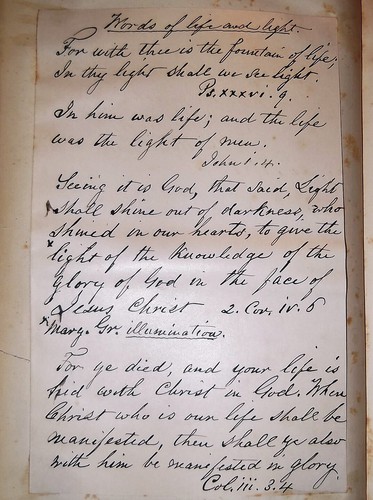 Words of life and light.
For with thee is the fountain of life;
In thy light shall we see light.
Ps. xxxvi. 9.
In him was life; and the life
was the light of men.
John 1. 4.
Seeing it is God, that said, Light
shall shine out of darkness, who
shined in our hearts, to give the
x light of the knowledge of the
glory of God in the face of
Jesus Christ 2. Cor. iv. 6
x Marg. Gr. illumination.
For ye died, and your life is
hid with Christ in God. When
Christ who is our life shall be
manifested, then shall ye also
with him be manifested in glory.
Col. iii. 3. 4